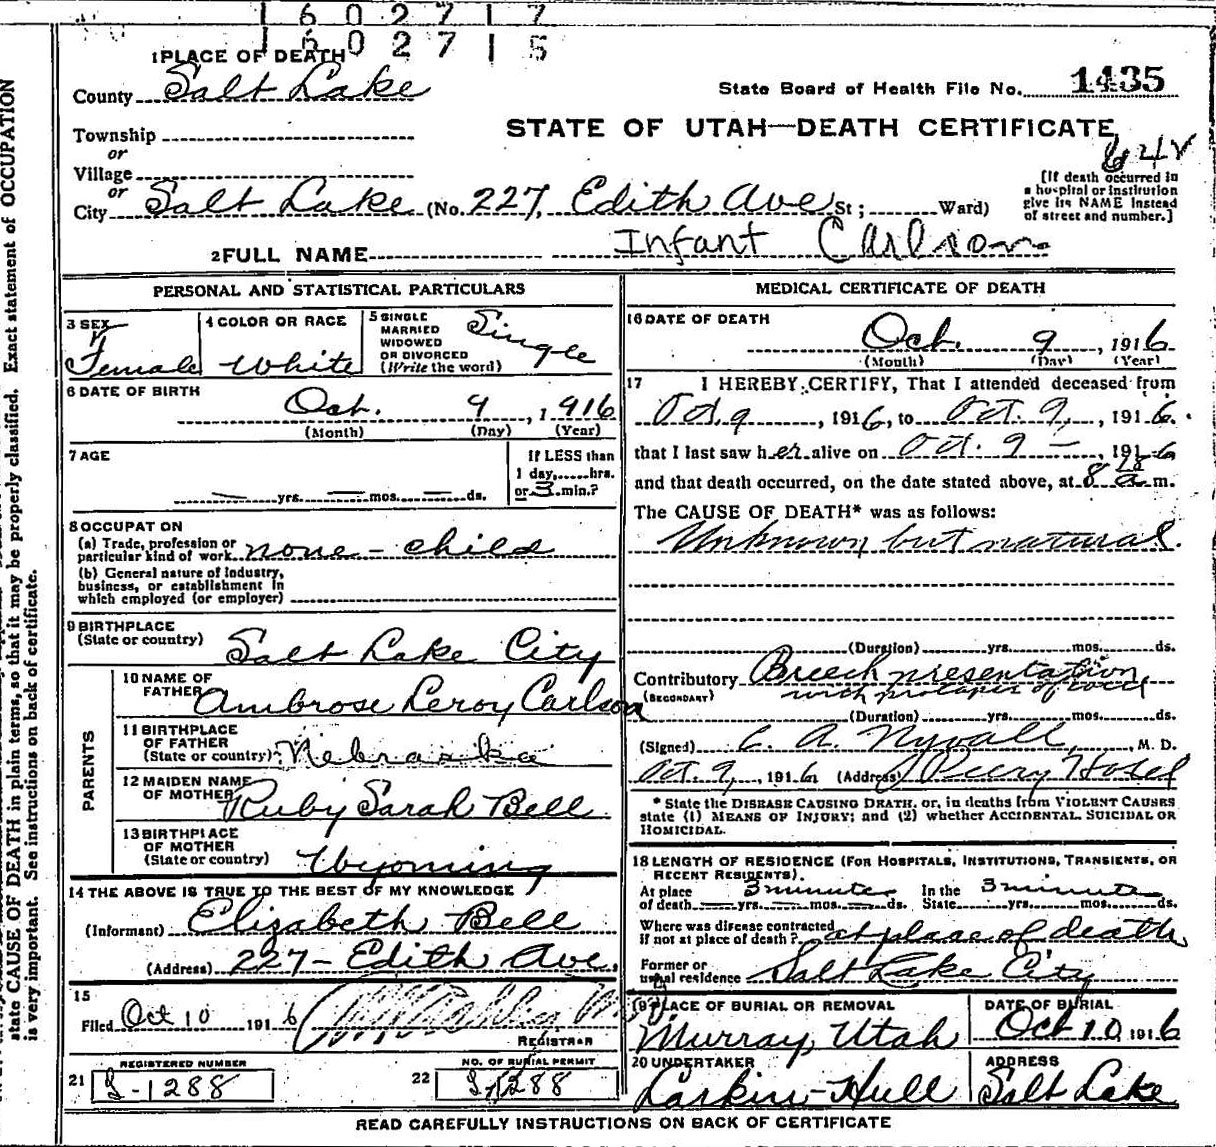 1 6 0 2 7 1 7
1 6 0 2 7 1 5
1 PLACE OF DEATH
County Salt Lake
State Board of Health File No. 1435
Township
STATE OF UTAH—DEATH CERTIFICATE
or
Village
or
City Salt Lake (No. 227, Edith Ave St; Ward)
[If death occurred in
a hospital or institution
give its NAME instead
of street and number.]
2 FULL NAME Infant Carlson
PERSONAL AND STATISTICAL PARTICULARS
3 SEX
Female
4 COLOR OR RACE
White
5 SINGLE
MARRIED
WIDOWED
OR DIVORCED
(Write the word)
Single
6 DATE OF BIRTH
Oct. 9, 1916
(Month) (Day) (Year)
7 AGE
— yrs. — mos. — ds.
If LESS than
1 day, hrs.
or 3 min.?
8 OCCUPAT ON
(a) Trade, profession or
particular kind of work none - child
(b) General nature of industry,
business, or establishment in
which employed (or employer)
9 BIRTHPLACE
(State or country) Salt Lake City
PARENTS
10 NAME OF
FATHER Ambrose Leroy Carlson
11 BIRTHPLACE
OF FATHER
(State or country) Nebraska
12 MAIDEN NAME
OF MOTHER Ruby Sarah Bell
13 BIRTHPLACE
OF MOTHER
(State or country) Wyoming
14 THE ABOVE IS TRUE TO THE BEST OF MY KNOWLEDGE
(Informant) Elizabeth Bell
(Address) 227 - Edith Ave.
15
Filed Oct 10 1916
REGISTRAR
REGISTERED NUMBER
21 S-1288
NO. OF BURIAL PERMIT
22 S-1288
MEDICAL CERTIFICATE OF DEATH
16 DATE OF DEATH
Oct. 9, 1916
(Month) (Day) (Year)
17 I HEREBY CERTIFY, That I attended deceased from
Oct. 9, 1916, to Oct. 9, 1916.
that I last saw her alive on Oct. 9 -, 1916
and that death occurred, on the date stated above, at 8 18 a m.
The CAUSE OF DEATH* was as follows:
Unknown but natural.
(Duration) yrs. mos. ds.
Contributory Breech presentation
(SECONDARY) with prolapse of cord
(Duration) yrs. mos. ds.
(Signed) C. A. Nyvall, M. D.
Oct. 9, 1916 (Address) Peery Hotel
* State the DISEASE CAUSING DEATH, or, in deaths from VIOLENT CAUSES
state (1) MEANS OF INJURY; and (2) whether ACCIDENTAL, SUICIDAL OR
HOMICIDAL.
18 LENGTH OF RESIDENCE (FOR HOSPITALS, INSTITUTIONS, TRANSIENTS, OR
RECENT RESIDENTS).
At place 3 minutes In the 3 minutes
of death yrs. mos. ds. State yrs. mos. ds.
Where was disease contracted
if not at place of death? at place of death
Former or
usual residence Salt Lake City
19 PLACE OF BURIAL OR REMOVAL
Murray, Utah
DATE OF BURIAL
Oct 10 1916
20 UNDERTAKER
Larkin-Hull
ADDRESS
Salt Lake
READ CAREFULLY INSTRUCTIONS ON BACK OF CERTIFICATE
state CAUSE OF DEATH in plain terms, so that it may be properly classified. Exact statement of OCCUPATION
is very important. See instructions on back of certificate.